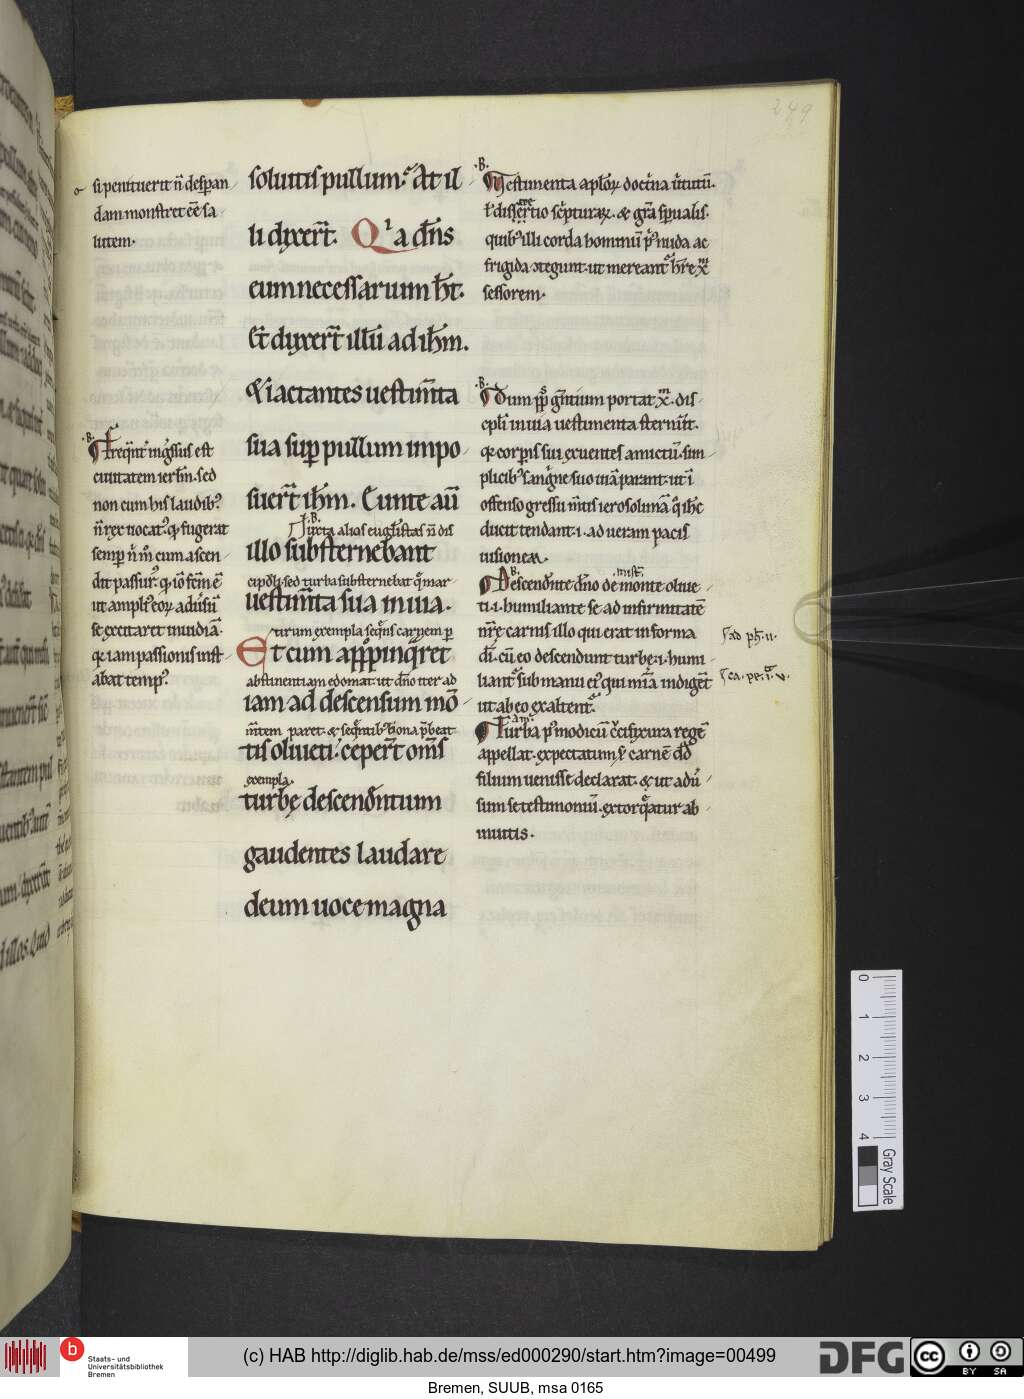 249
si penituerit n̄ desꝑan
dam monstret eē sa
lutem.
.B.
Freq̄nt' ing̃ssus est
ciuitatem ierl̄m. sed
non cum his laudib⁊
n̄ rex uocat⁊. q̨ fugerat
semꝑ n̄
cum ascen
dit passur⁊.
ut
se excitaret iuudiā.
q̨ iam passionis inst
abat temp⁊.
soluitis pullum. At il
li dixer̄t. Quia dn̄s
eum necessarum h̄t.
Et dixer̄t illū ad ih̄m.
& iactantes uestim̄ta
sua suꝑ pullum impo
suer̄t ih̄m. Eunte aū
.B.
Iuxta alios euḡlistas n̄ dis
illo substernebant
cipl̄i. sed turba substernebat q̄ mar
uestim̄ta sua in uia.
tirum exempla seq̄ns carnem ꝑ
Et cum aꝓpinq̄ret
abstinentiam edomat. ut dn̄o iter ad
iam ad descensum mō
m̄tem paret. & seq̄ntib⁊ bona p̄beat
tis oliueti. ceper̄t om̄s
exempla.
turbę descend̄ntium
gaudentes laudare
deum uoce magna
.B.
Vestimenta apl̄oꝝ doct̄na ūtutū.
l̄ dissertio sc̄pturaꝝ. & gr̄a sp̄ualis.
quib⁊ illi corda hominū p⁊ nuda ac
frigida ꝯtegunt. ut mereant' h̄re x̄m
sessorem.
.B.
Dum ꝓꝑ g̃ntium portat x̄m. dis
cpl̄i in uia uestimenta sternūt.
q̨ corꝑis sui exuentes amictū. sim
plicib⁊ sang̃ne suo uiā parant. ut i
offenso gressu m̄tis ierosolimā q̄ ih̄c
ducit tendant. i. ad ueram pacis
uisionem.
.B.
Descend̄nte dn̄o de monte oliue
ti. i. humiliante se ad infirmitatē
nr̄ę carnis illo qui erat in forma
dī. cū eo descendunt turbę. i. humi
liant' sub manu ei⁊ qui mīa indiḡet
ut ab eo exaltent'.
Turba p⁊ modicū c̄cifixura regē
appellat. expectatum ī carnē d̄d
filium uenisse declarat. & ut adū
sum se testimoniū. extorq̄atur ab
inuitis.
ad ph̄. ii.
0 1 2 3 4
Gray Scale
b
Staats- und
Universitätsbibliothek
Bremen
(c) HAB http://diglib.hab.de/mss/ed000290/start.htm?image=00499
DFG
cc BY SA
Bremen, SUUB, msa 0165